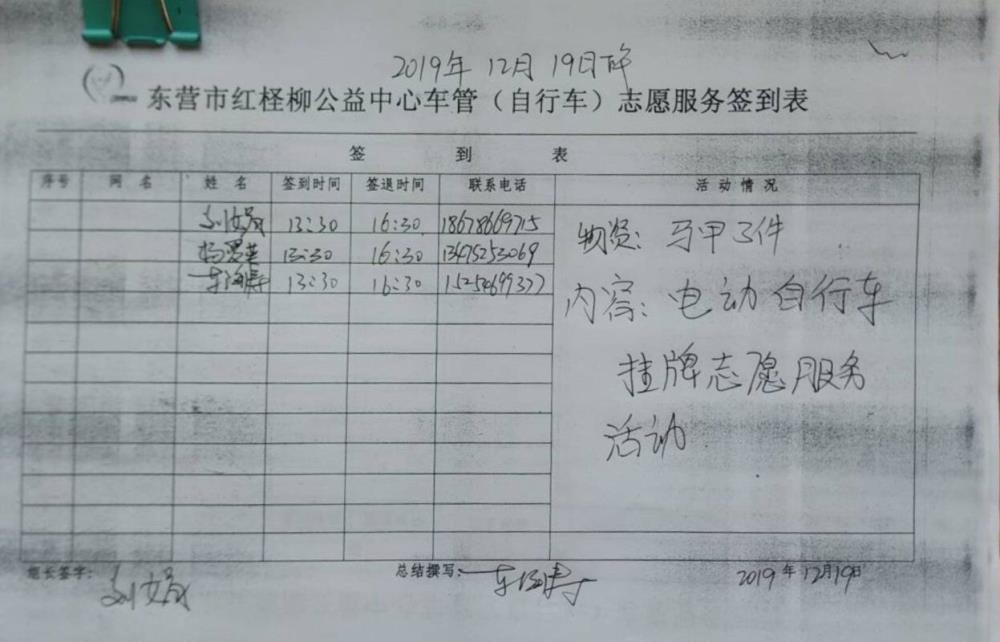 2019年12月19日下午
东营市红柽柳公益中心车管（自行车）志愿服务签到表
签 到 表
序号 网 名 姓 名 签到时间 签退时间 联系电话 活动情况
13:30 16:30 18678669715
13:30 16:30 13475253069
13:30 16:30
物资：马甲3件
内容：电动自行车
挂牌志愿服务
活动
组长签字：
总结撰写：
2019年12月19日